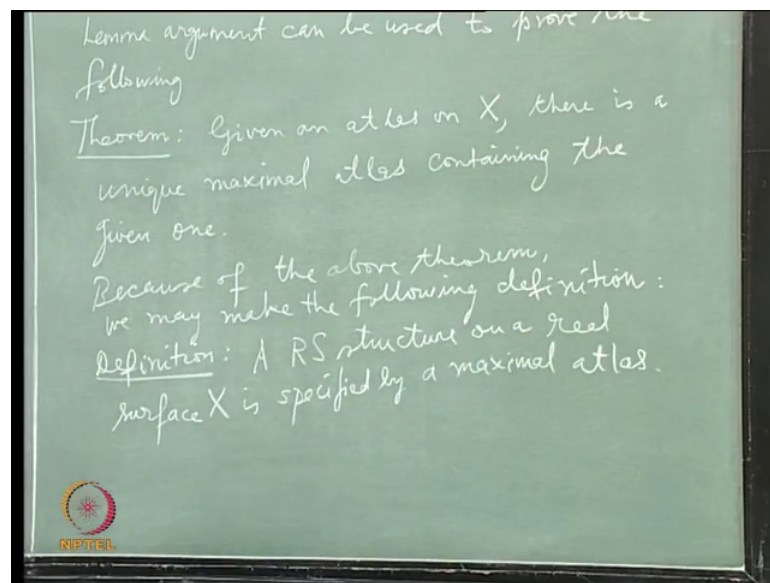 Lemma argument can be used to prove the
following
Theorem: Given an atlas on X, there is a
unique maximal atlas containing the
given one.
Because of the above theorem,
we may make the following definition:
Definition: A RS structure on a real
surface X is specified by a maximal atlas.
NPTEL